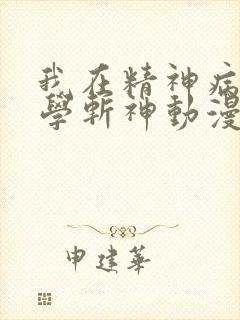 我在精神病
學斬神動漫
申建華